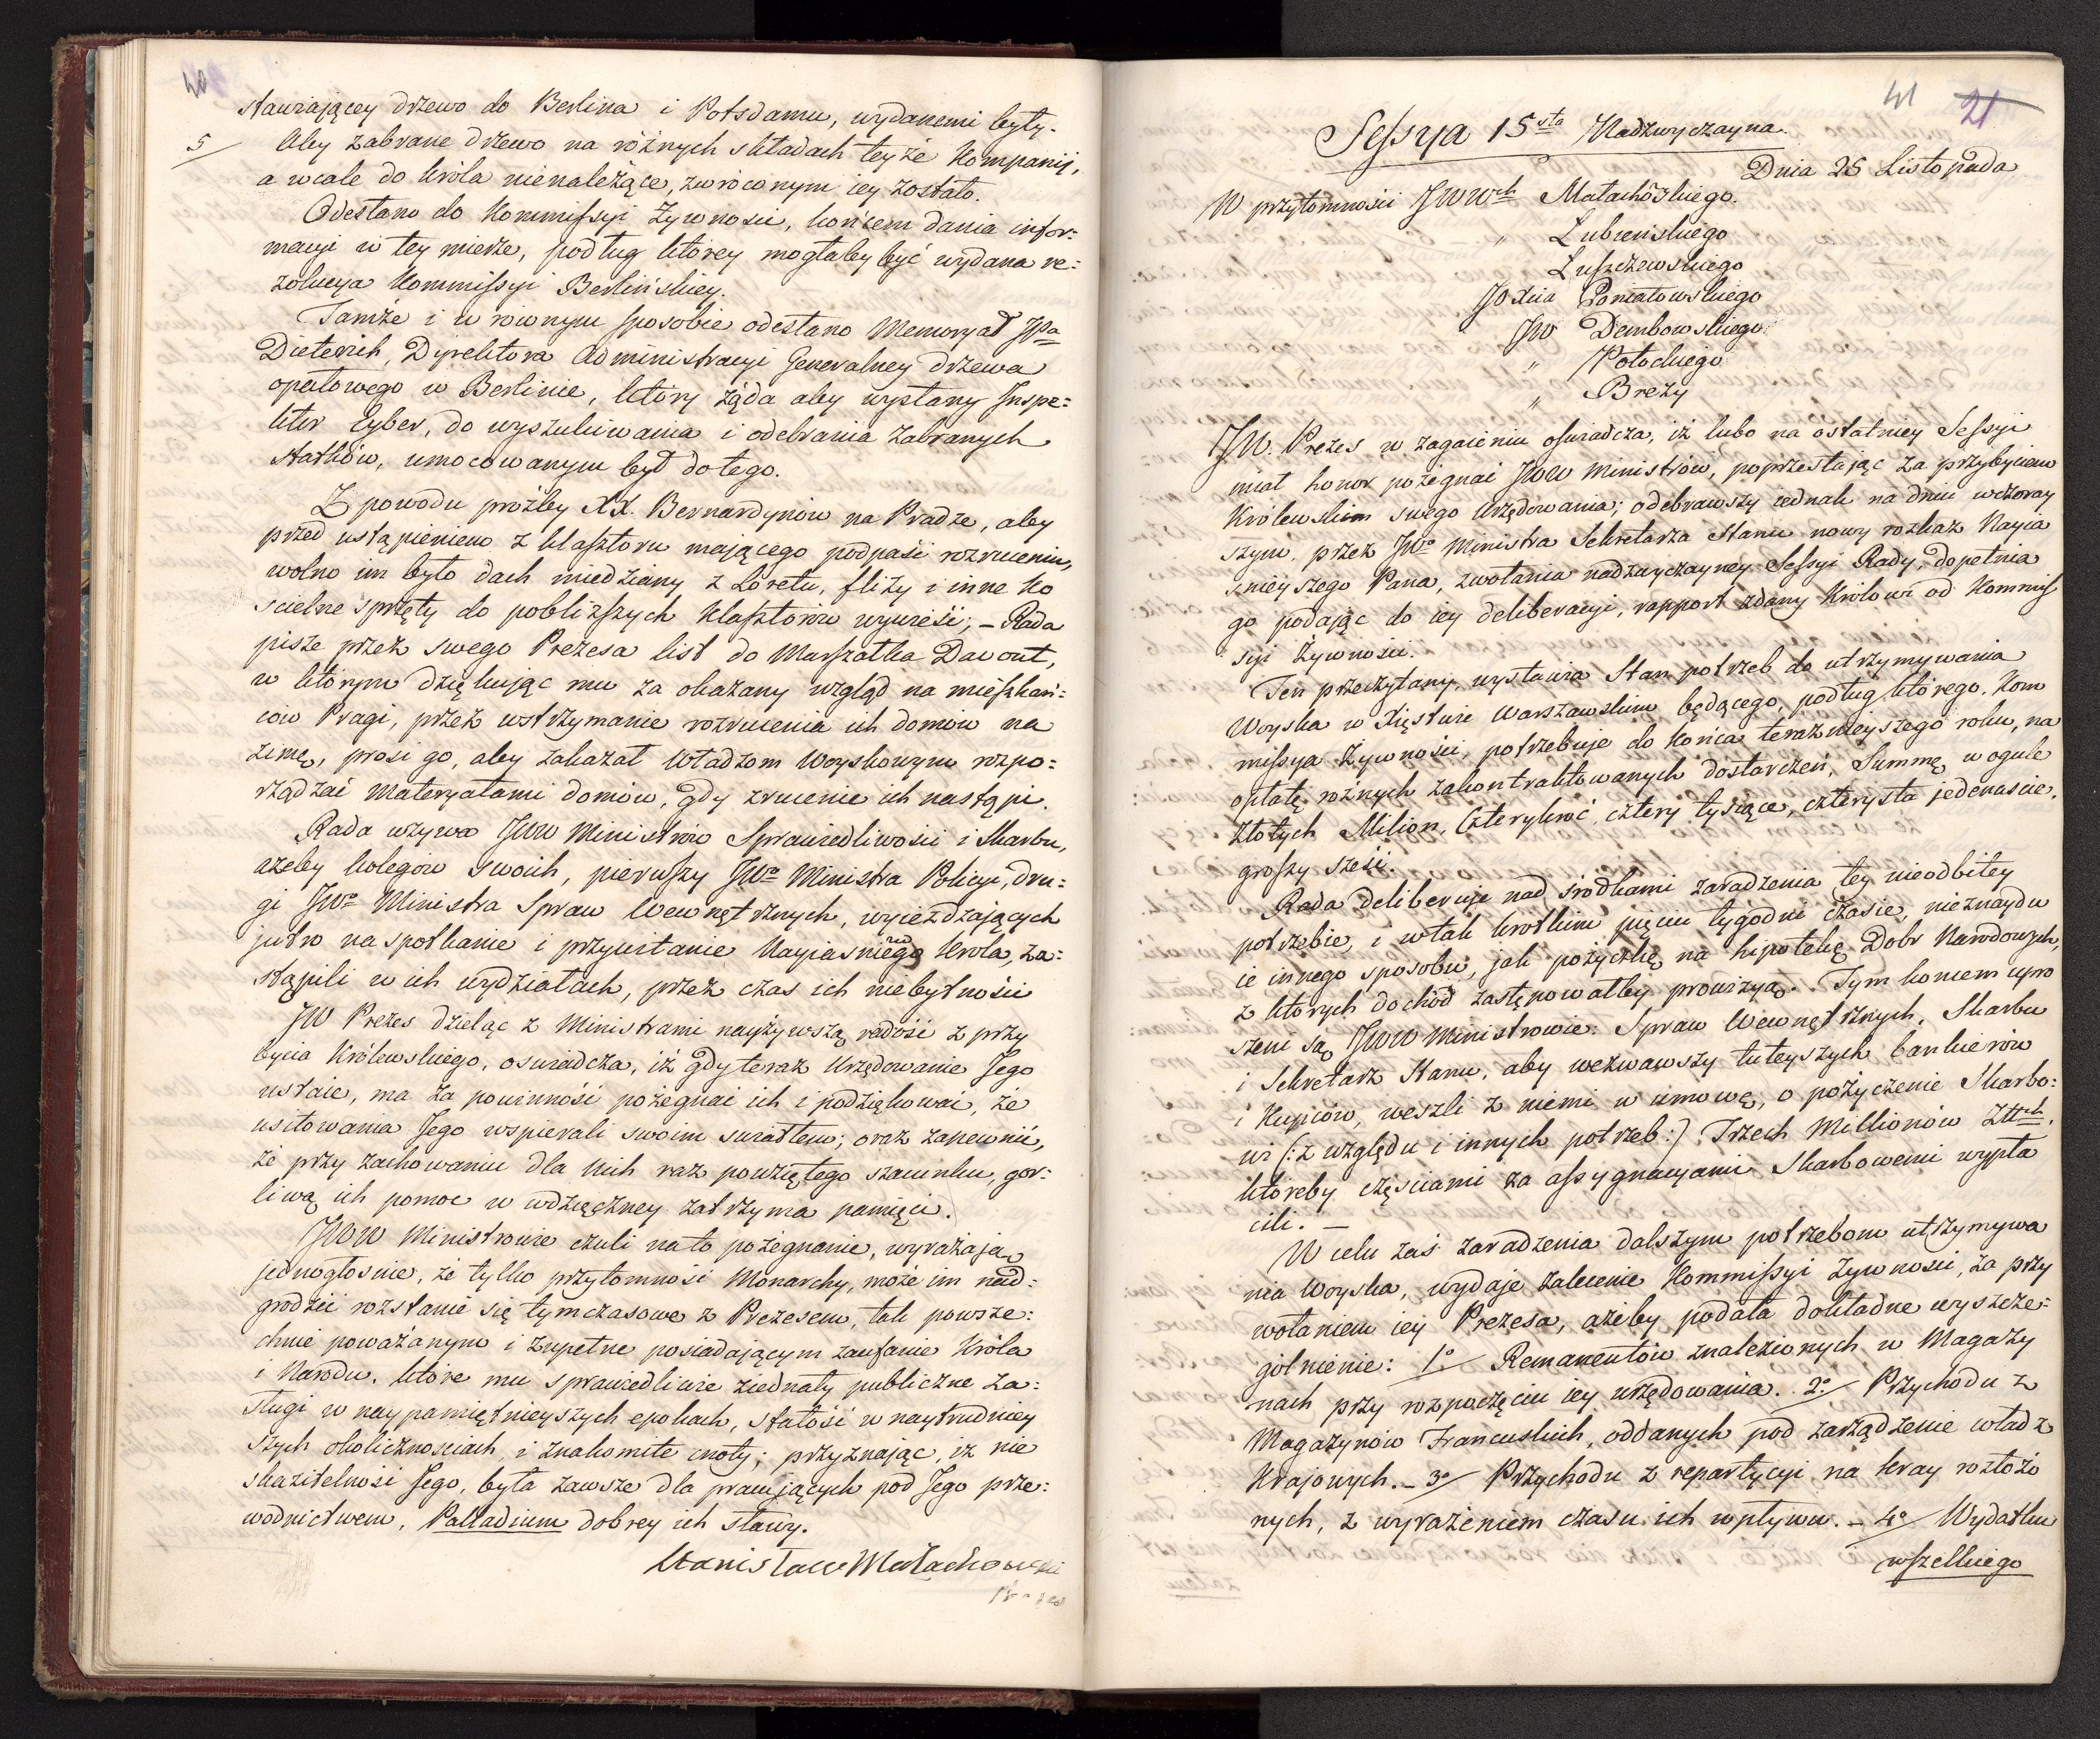 40
stawiającey drzewo do Berlina i Potsdamu, wydanemi były.
5/ Aby zabrane drzewo na różnych składach teyże Kompanij,
a wcale do Króla nienależące, zwróconym iey zostało.
Odesłano do Kommissyi Żywności, końcem dania infor:
macyi w tey mierze, podług którey mogłaby być wydana re:
zolucya Kommissyi Berlińskiey.
Tamże i w równym sposobie odesłano Memoryał JPa
Dieterich, Dyrektora Administracyi Generalney drzewa
opałowego w Berlinie, który żąda aby wysłany Inspe:
ktor Eyber, do wyszukiwania i odebrania zabranych
statków, umocowanym był do tego.
Z powodu proźby XX. Bernardynów na Pradze, aby
przed ustąpieniem z klasztoru mającego podpaść rozruceniu,
wolno im było dach miedziany z Loretu, flizy i inne Ko
scielne sprzęty do pobliższych Klasztorów wywieść; – Rada
pisze przez swego Prezesa list do Marszałka Davout,
w którym dziękując mu za okazany wzgląd na mieszkań:
ców Pragi, przez wstrzymanie rozrucenia ich domów na
zimę, prosi go, aby zakazał Władzom Woyskowym rozpo:
rządzać materyałami domów, gdy zrucenie ich nastąpi.
Rada wzywa JWW Ministrów Sprawiedliwości i Skarbu,
ażeby kolegów swoich, pierwszy JWo Ministra Policyi, dru:
gi JWo Ministra Spraw Wewnętrznych, wyieżdzających
jutro na spotkanie i przywitanie Nayiasnieg Krola, za:
stąpili w ich wydziałach, przez czas ich niebytności
JW Prezes dzieląc z Ministrami nayżywszą radość z przy
bycia Królewskiego, oswiadcza, iż gdy teraz Urzędowanie Jego
ustaie, ma za powinność pożegnać ich i podziękować, że
usiłowania Jego wspierali swoim swiatłem; oraz zapewnić,
że przy zachowaniu dla Nich raz powziętego szacunku, gor:
liwą ich pomoc w wdzięczney zatrzyma pamięci.
JWW Ministrowie czuli na to pożegnanie, wyrażają
jednogłosnie, że tylko przytomność Monarchy, może im nad:
grodzić rozstanie się tymczasowe z Prezesem, tak powsze:
chnie poważanym i zupełne posiadającym zaufanie Króla
i Narodu, które mu sprawiedliwie ziednały publiczne za:
sługi w naypamiętnieyszych epokach, stałość w naytrudniey
szych okolicznosciach, i znakomite cnoty; przyznając, iż nie
skazitelność Jego, była zawsze dla pracujących pod Jego prze:
wodnictwem, Palladium dobrey ich sławy.
Stanisław Małachowski
Prezes
41 21
Sessya 15sta Nadzwyczayna.
Dnia 25 Listopada
W przytomności JWWch Małachowskiego.
" Lubienskiego
Luszczewskiego
JOXcia Poniatowskiego
JW Dembowskiego
" Potockiego
" Brezy
JW. Prezes w zagaieniu oswiadcza, iż lubo na ostatniey Sessyi
miał honor pożegnać JWW Ministrów, poprzestając za przybyciem
Królewskim swego Urzędowania; odebrawszy iednak na dniu wczoray
szym, przez JWo Ministra Sekretarza Stanu nowy rozkaz Nayia
snieyszego Pana, zwołania nadzwyczayney Sessyi Rady, dopełnia
go podając do iey deliberacyi, rapport zdany Królowi od Kommis
syi Żywności.
Ten przeczytany, wystawia Stan potrzeb do utrzymywania
Woyska w Xięstwie Warszawskim będącego, podług którego, Kom
missya Żywności, potrzebuje do końca teraźnieyszego roku, na
opłatę roznych zakontraktowanych dostarczeń, Summę w ogule
złotych Milion, Czterykroć, cztery tysiące, czterysta jedenascie,
groszy sześć.
Rada deliberuje nad środkami zaradzenia tey nieodbitey
potrzebie, i w tak krotkim pięciu tygodni czasie, nieznaydu
ie innego sposobu, jak pożyczkę na hipotekę Dobr Narodowych,
z których dochód zastępowałby prowizyą. Tym koncem upro
szeni są JWW Ministrowie: Spraw Wewnętrznych, Skarbu
i Sekretarz Stanu, aby wezwawszy tuteyszych bankierów
i Kupców, weszli z niemi w umowę, o pożyczenie Skarbo:
wi (: z względu i innych potrzeb:) Trzech Millionów Złłch,
któreby częściami za assygnacyami Skarbowemi wypła
cili. –
W celu zaś zaradzenia dalszym potrzebom utrzymywa
nia Woyska, wydaje zalecenie Kommissyi Żywności, za przy
wołaniem iey Prezesa, ażeby podała dokładne wyszcze:
gólnienie: 1o/ Remanentów znalezionych w Magazy
nach przy rozpoczęciu iey urzędowania. 2o/ Przychodu z
Magazynów Francuskich, oddanych pod zarządzenie władz
Krajowych. – 3o/ Przychodu z repartycyi na Kray rozłożo
nych, z wyrażeniem czasu ich wpływu. – 4o/ Wydatku
wszelkiego